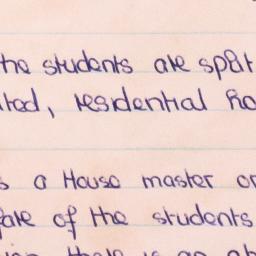 the students are split
ited, residential Ho
s a House master or
fare of the students
there is an ab